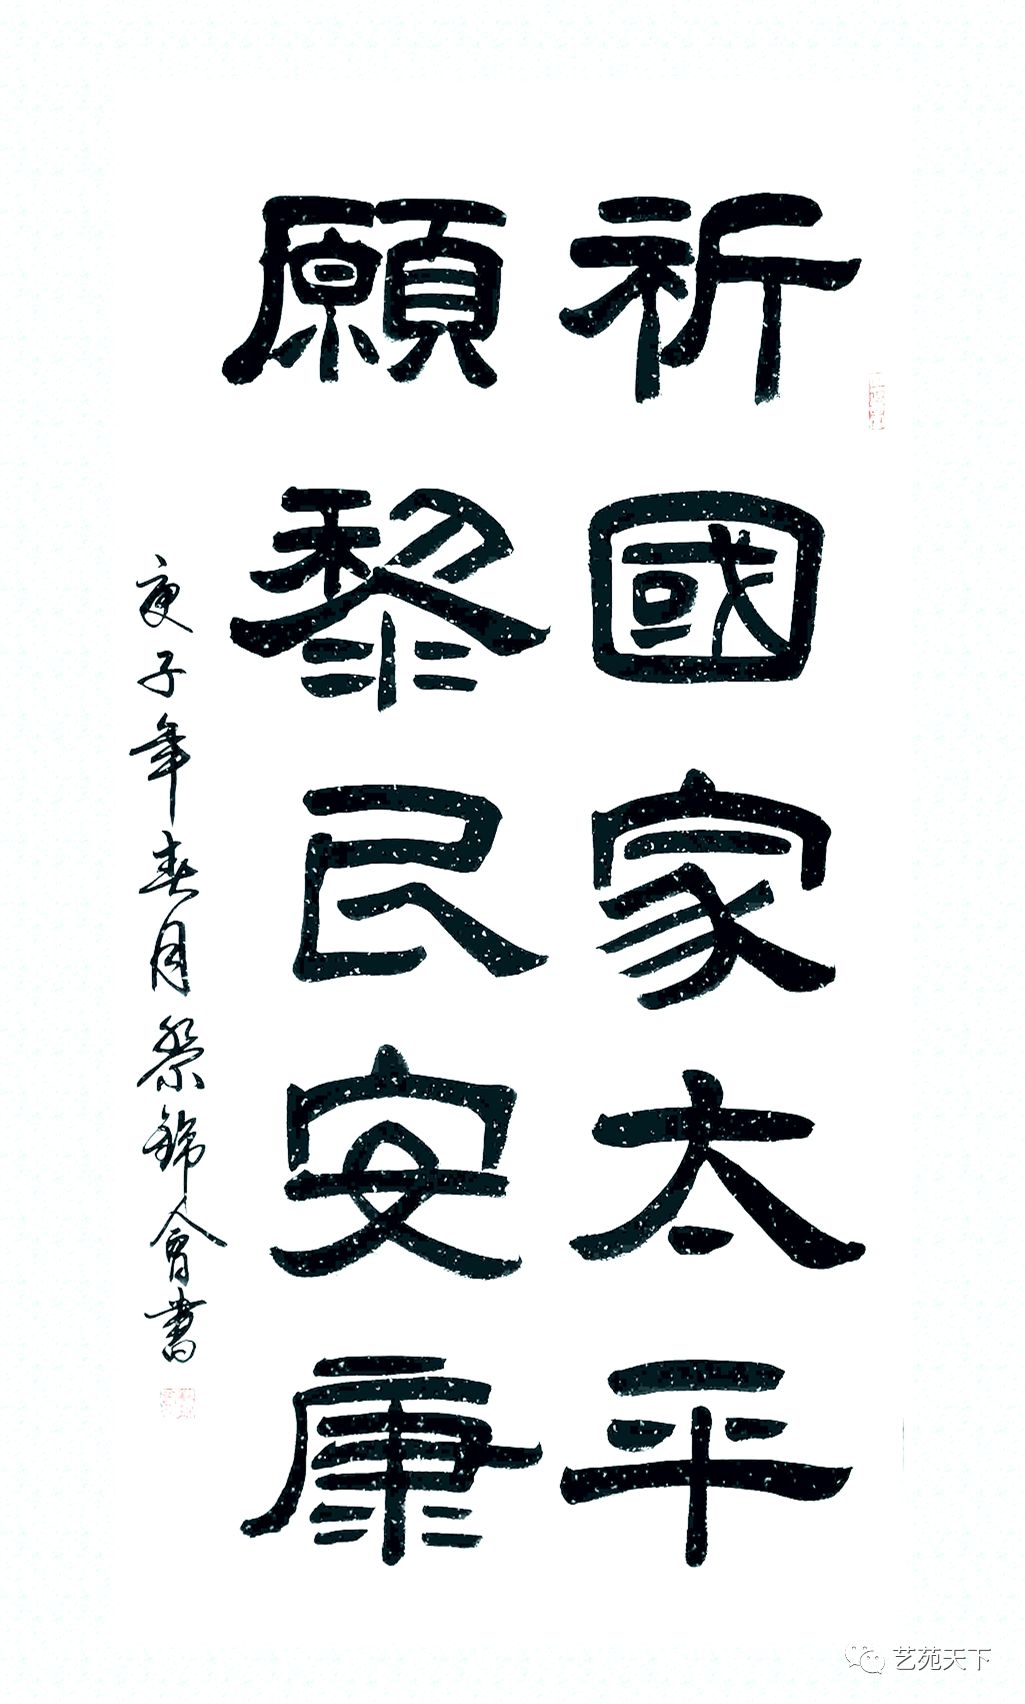 祈國家太平
願黎民安康
庚子年春月蔡錦會書
艺苑天下